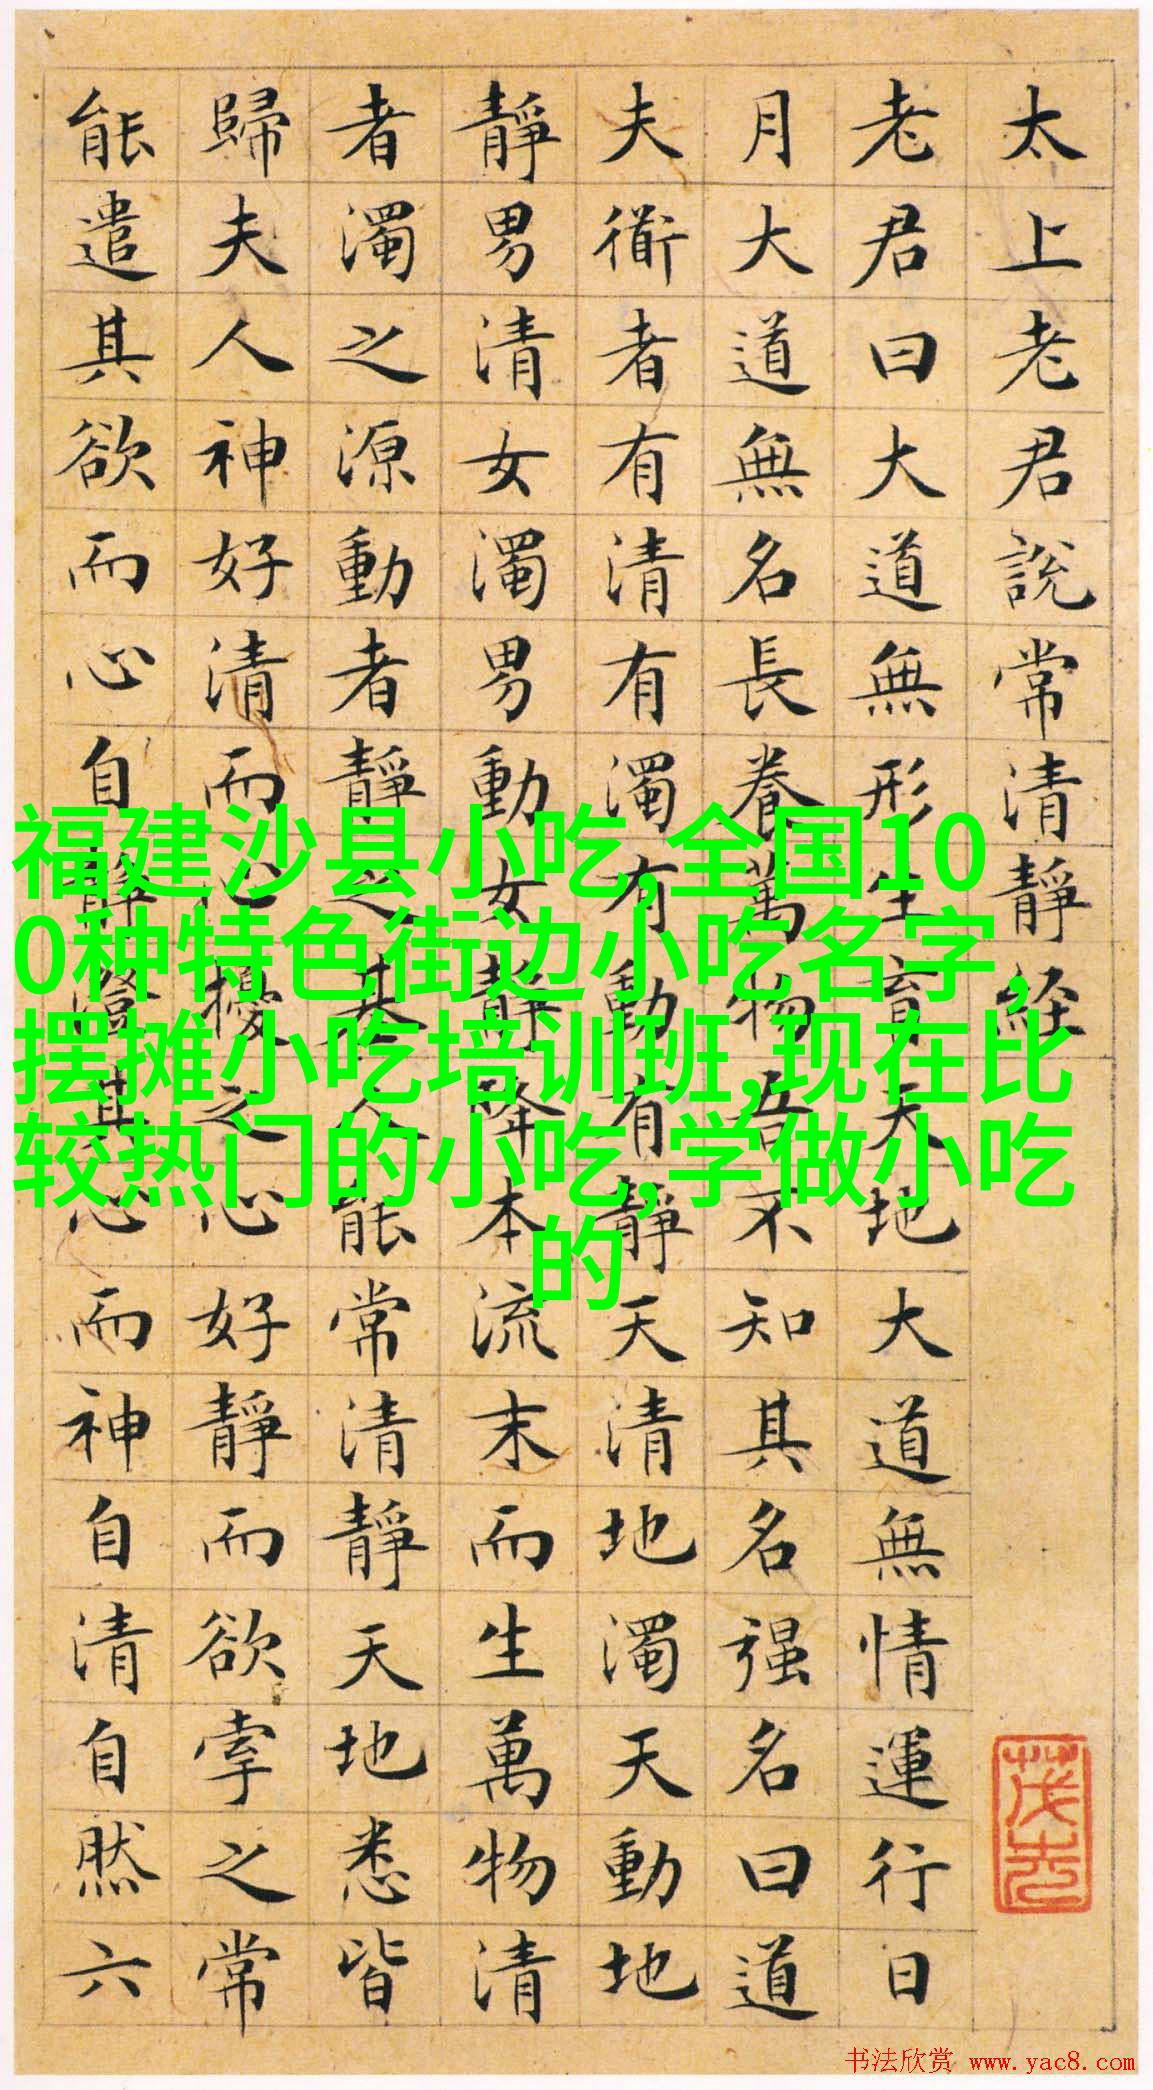 太上老君說常清靜經
老君曰大道無形生育天地大道無情運行日
月大道無名長養萬物吾不知其名强名曰道
夫衜者有清有濁有動有靜天清地濁天動地
靜男清女濁男動女靜降本流末而生萬物清
者濁之源動者靜之基人能常清靜天地悉皆
歸夫人神好清而心擾之心好靜而欲牽之常
能遣其欲而心自靜澄其心而神自清自然六
福建沙县小吃,全国10
0种特色街边小吃名字,
摆摊小吃培训班,现在比
较热门的小吃,学做小吃
的
书法欣赏 www.yac8.com